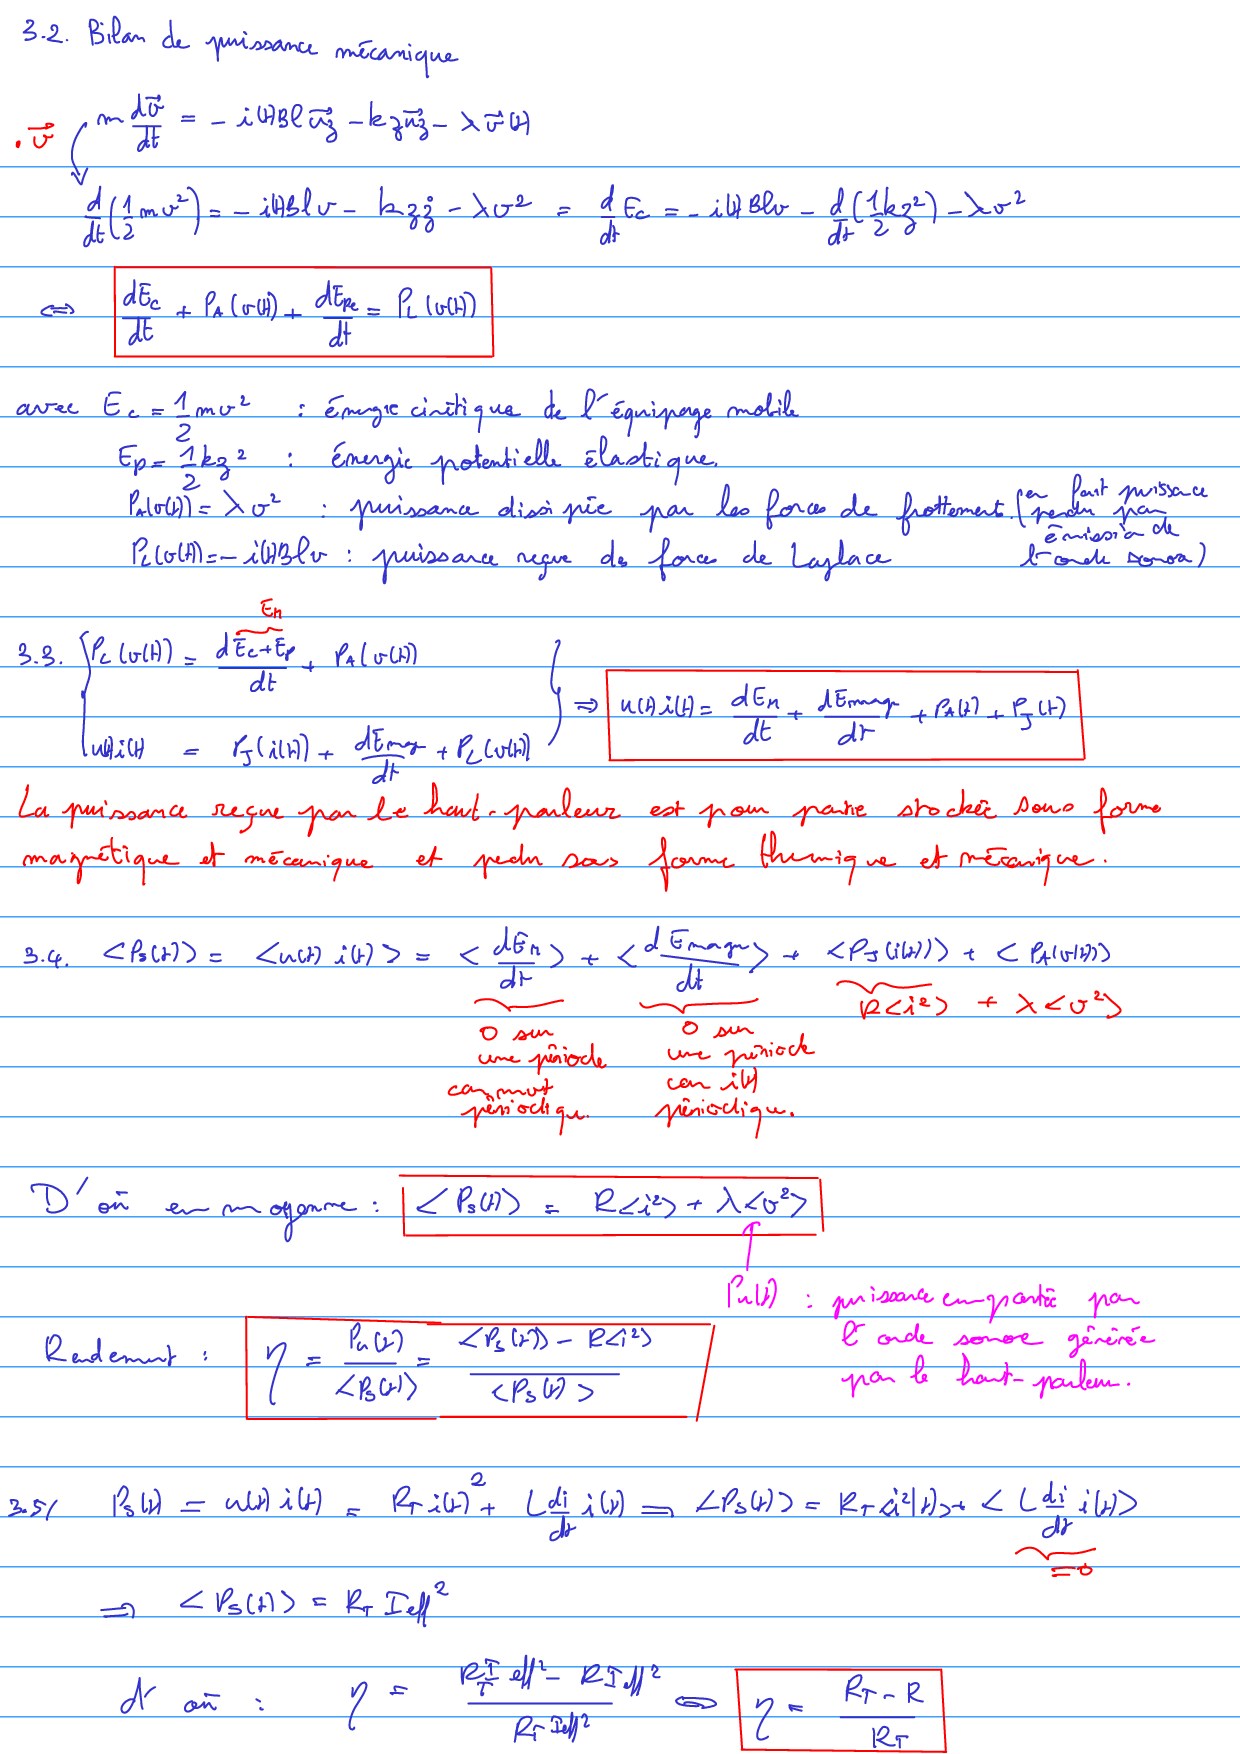 3.2. Bilan de puissance mécanique
. v⃗ m dv⃗/dt = - i(t)Bl u⃗z - kz u⃗z - λ v⃗(t)
d/dt(1/2 mv²) = - i(t)Blv - kzż - λv² = d/dt Ec = - i(t)Blv - d/dt(1/2 kz²) - λv²
⇔ dEc/dt + PA(v(t)) + dEpe/dt = PL(v(t))
avec Ec = 1/2 mv² : énergie cinétique de l'équipage mobile
Ep = 1/2 kz² : énergie potentielle élastique.
PA(v(t)) = λv² : puissance dissipée par les forces de frottement. (en fait puissance perdu par émission de l'onde sonore)
PL(v(t)) = - i(t)Blv : puissance reçue des forces de Laplace
Em
3.3. { PL(v(t)) = dEc+Ep/dt + PA(v(t))
u(t)i(t) = PJ(i(t)) + dEmag/dt + PL(v(t)) } ⇒ u(t)i(t) = dEm/dt + dEmag/dt + PA(t) + PJ(t)
La puissance reçue par le haut-parleur est pour partie stockée sous forme
magnétique et mécanique et perdu sous forme thermique et mécanique.
3.4. <Ps(t)> = <u(t) i(t)> = <dEm/dt> + <dEmagn/dt> + <PJ(i(t))> + <PA(v(t))>
R<i²> + λ<v²>
0 sur une période car mvt périodique.
0 sur une période car i(t) périodique.
D'où en moyenne : <Ps(t)> = R<i²> + λ<v²>
Pu(t) : puissance emportée par
l'onde sonore générée
par le haut-parleur.
Rendement : η = Pu(t)/<Ps(t)> = <Ps(t)> - R<i²>/<Ps(t)>
3.5/ Ps(t) = u(t) i(t) = RT i(t)² + L di/dt i(t) ⇒ <Ps(t)> = RT<i²(t)> + <L di/dt i(t)>
=0
⇒ <Ps(t)> = RT Ieff²
d'où : η = RT Ieff² - R Ieff²/RT Ieff² ⇔ η = RT - R/RT